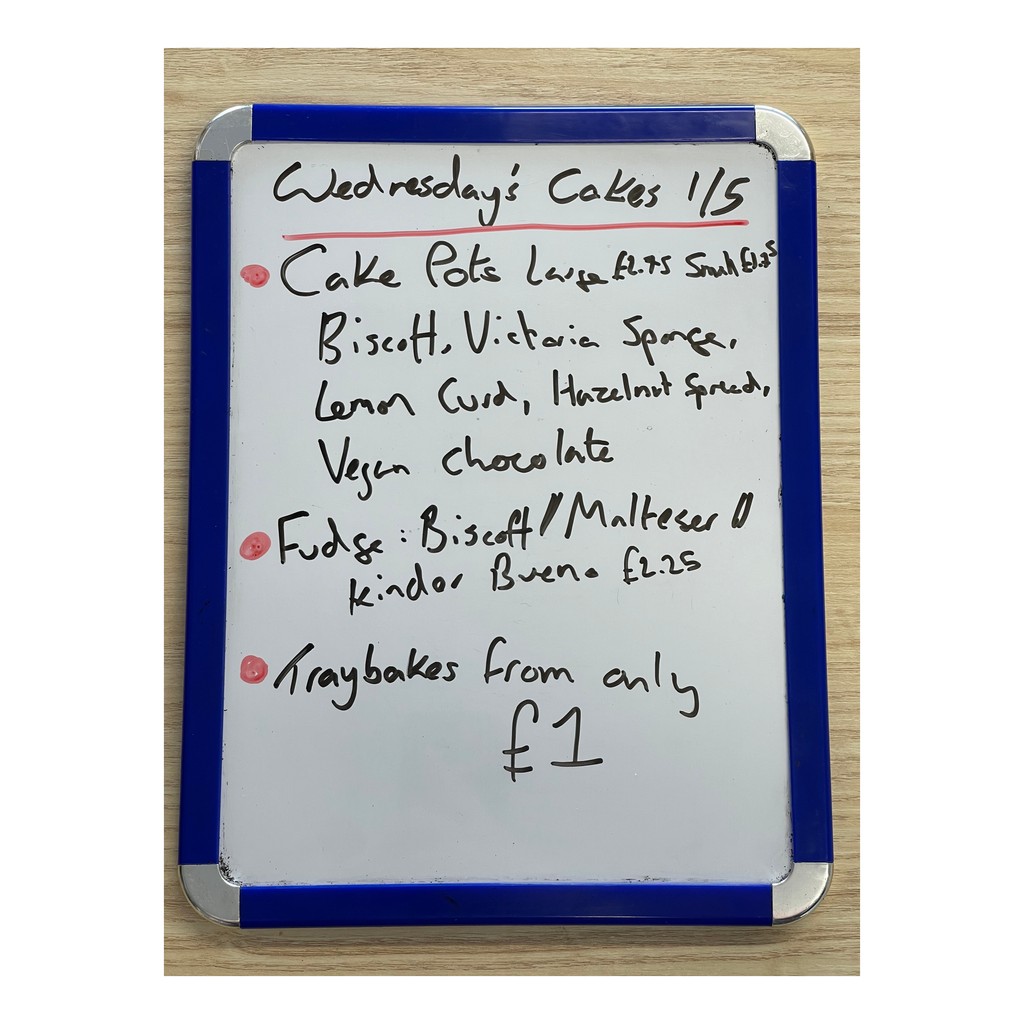 Wednesday's Cakes 1/5
Cake Pots Large £2.75 Small £1.75
Biscoff, Victoria Sponge,
Lemon Curd, Hazelnut Spread,
Vegan chocolate
Fudge : Biscoff // Malteser //
Kinder Bueno £2.25
Traybakes from only
£1